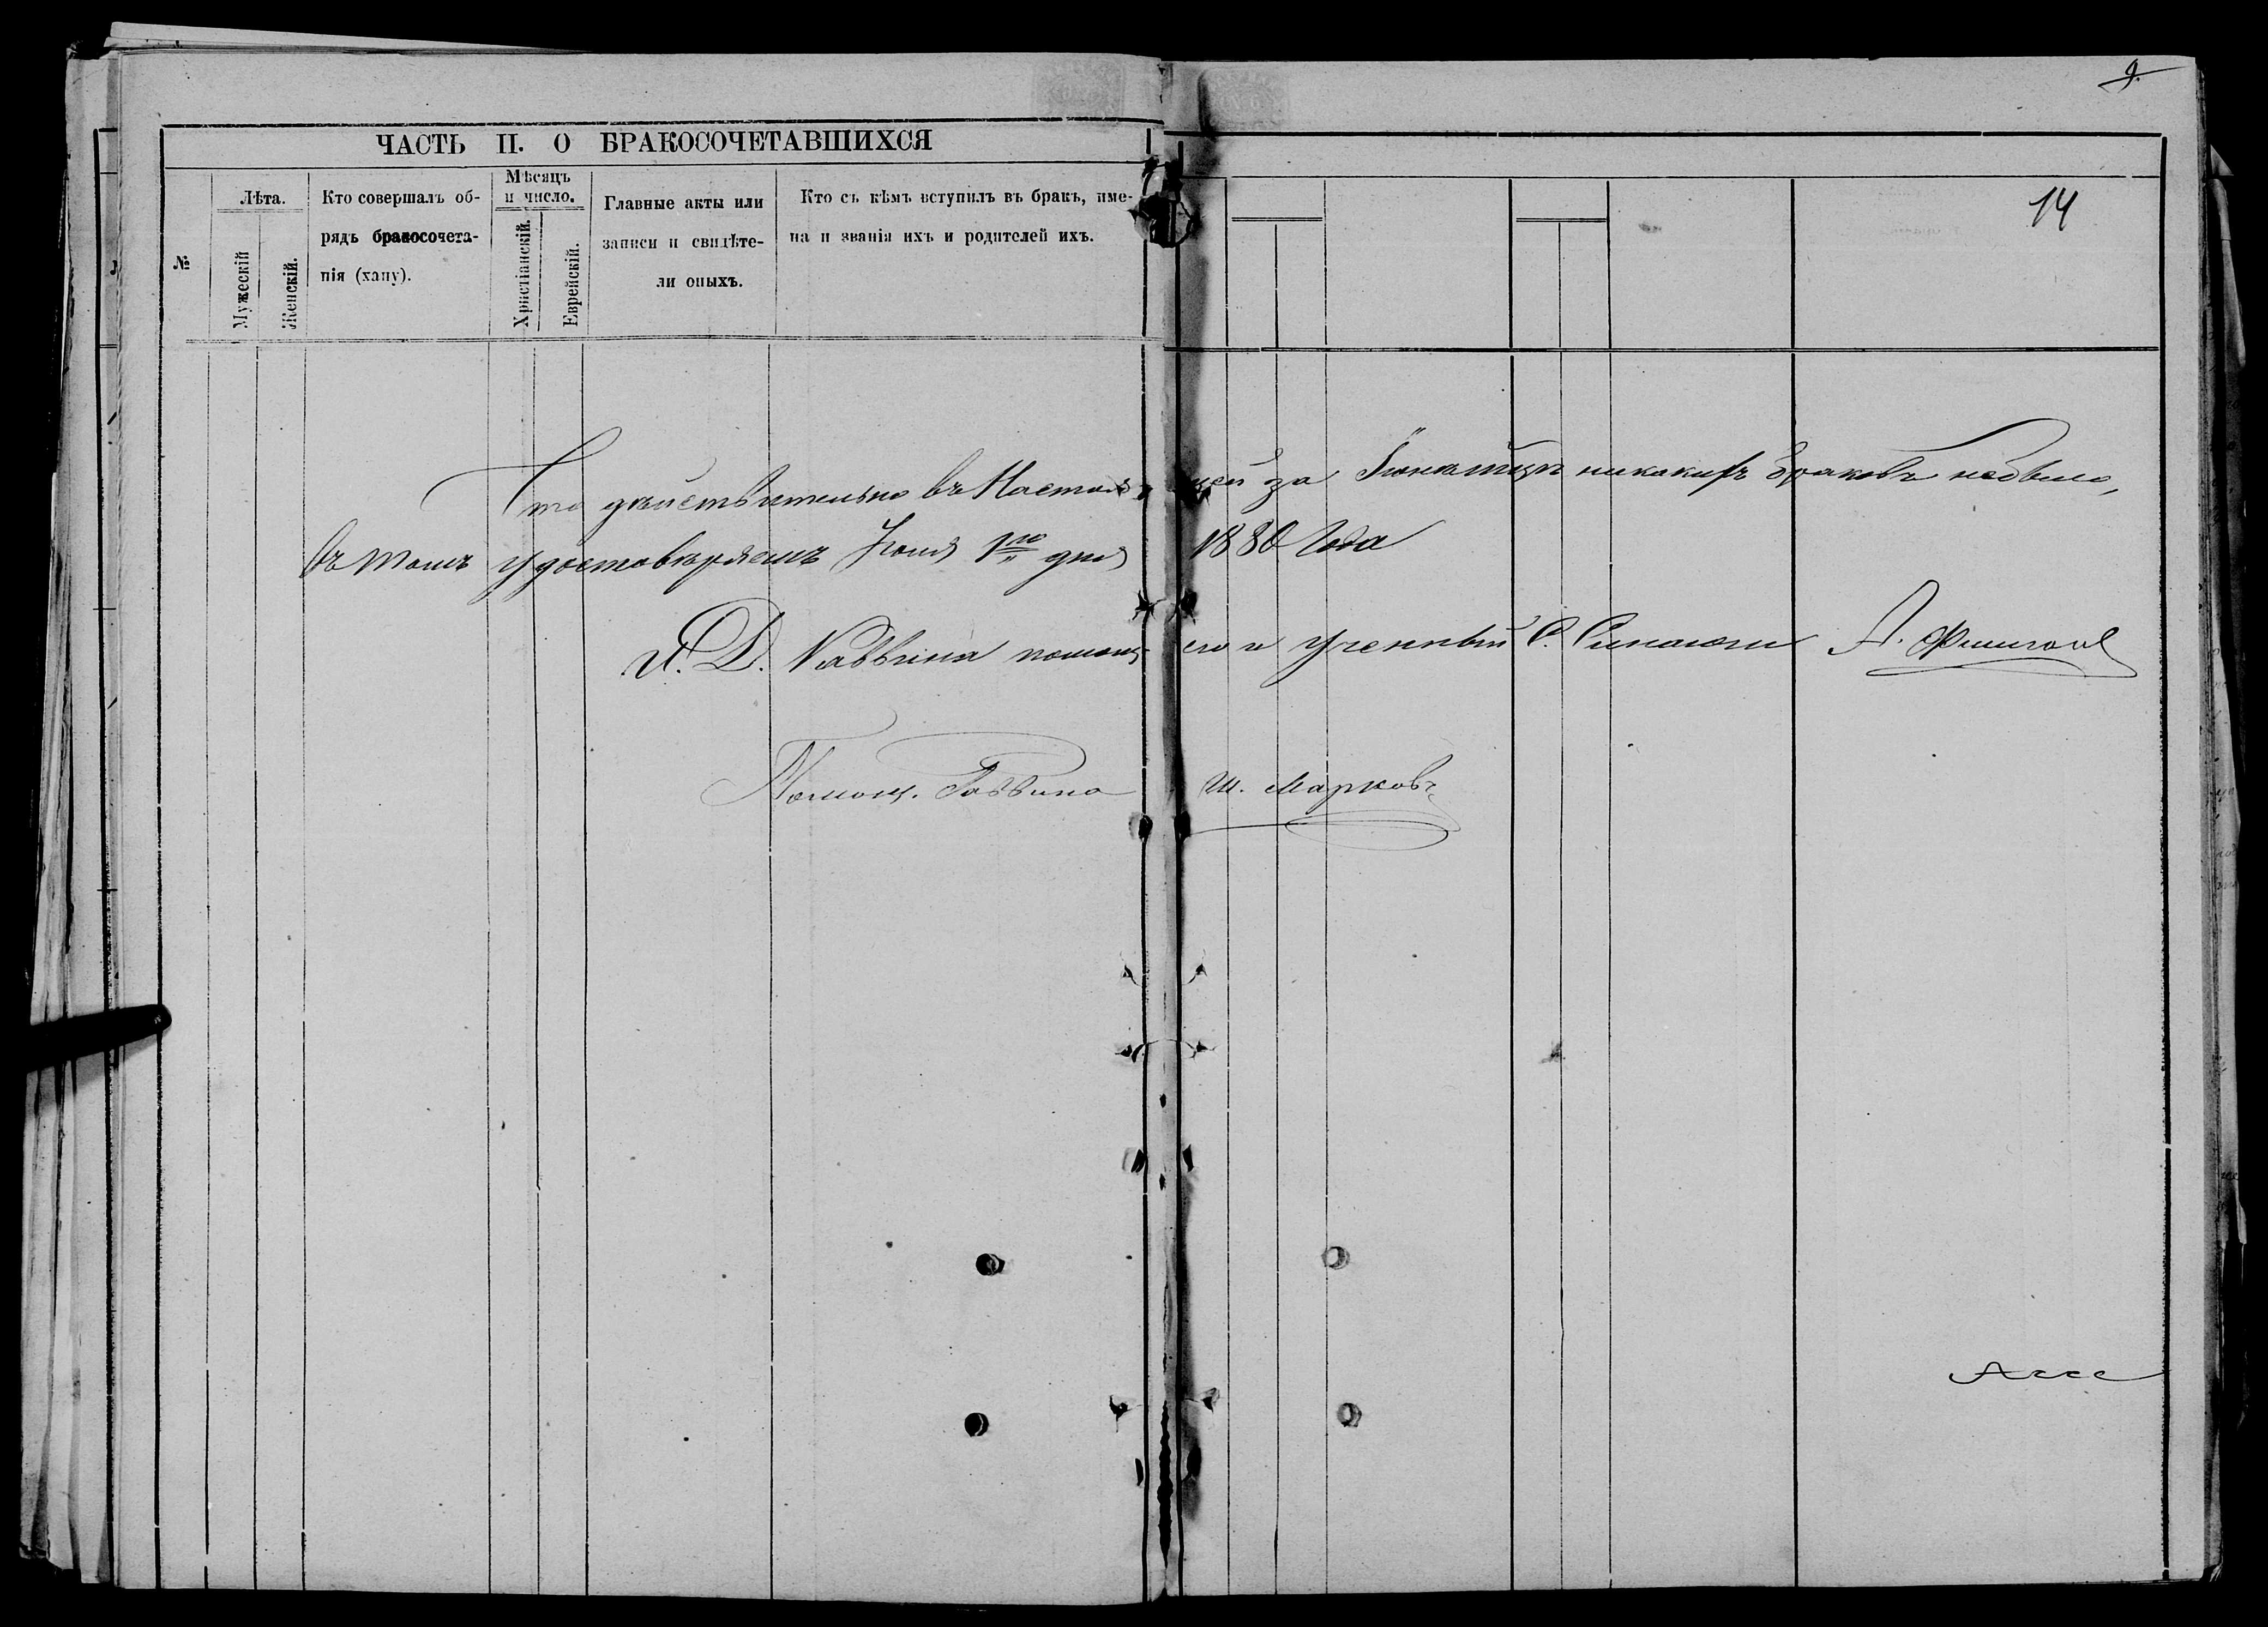 9.
ЧАСТЬ II. О БРАКОСОЧЕТАВШИХСЯ
14
№
Лѣта.
Мужескій
Женскій.
Кто совершалъ об-
рядъ бракосочета-
нія (хапу).
Мѣсяцъ
и число.
Христіанскій.
Еврейскій.
Главные акты или
записи и свидѣте-
ли оныхъ.
Кто съ кѣмъ вступилъ въ бракъ, име-
на и званія ихъ и родителей ихъ.
Что дѣйствительно въ Настоя- щей за никакихъ браковъ небыло,
въ томъ удостовѣряемъ Іюня 1го дня 1880 Года
И. Д. Раввина помощ- его и Ученный С.
Помощ. Раввина Ш. Марковъ